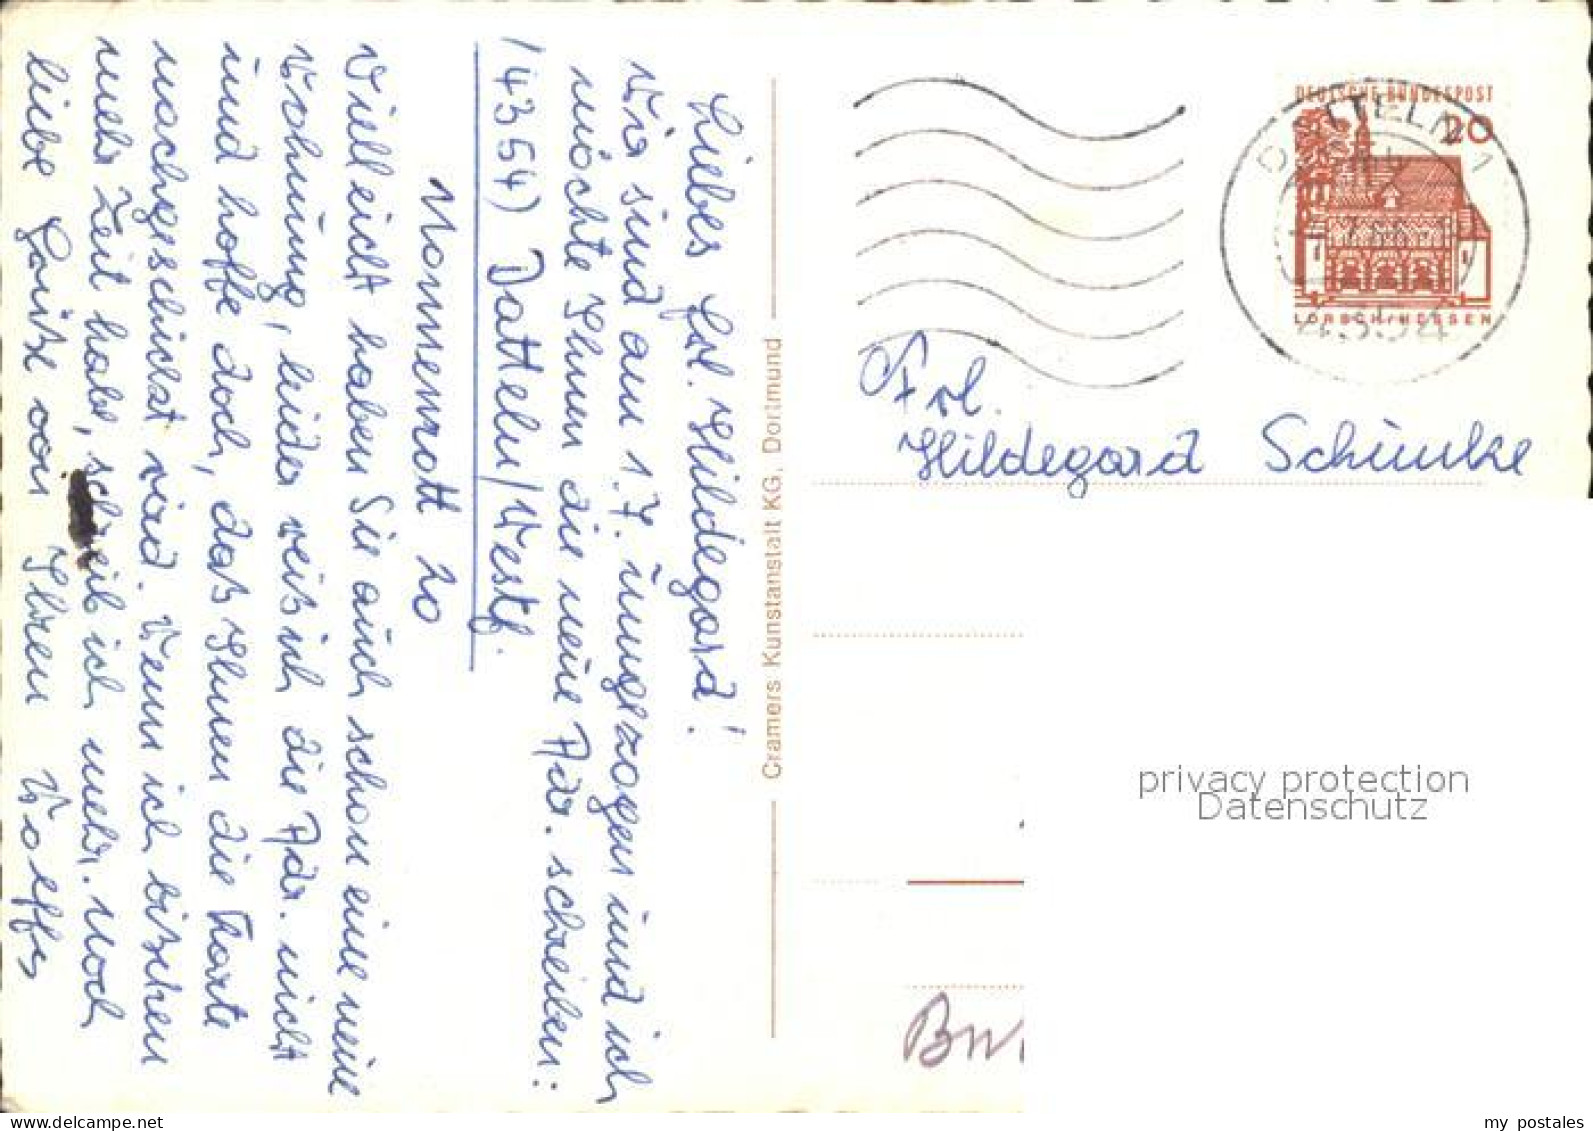 Liebes Frl. Hildegard!
Wir sind am 1.7. umgezogen und ich
möchte Ihnen die neue Adr. schreiben:
(4354) Datteln/Westf.
Nonnenrott 20
Vielleicht haben Sie auch schon eine neue
Wohnung, leider weiß ich die Adr. nicht
und hoffe doch, daß Ihnen die Karte
nachgeschickt wird. Wenn ich bißchen
mehr Zeit habe, schreib ich mehr. Noch
liebe Grüße von Ihren Woeffs
Cramers Kunstanstalt KG. Dortmund
DEUTSCHE BUNDESPOST
20
LORSCH/HESSEN
DATTELN 1
Frl.
Hildegard Schimke
privacy protection
Datenschutz
my postales